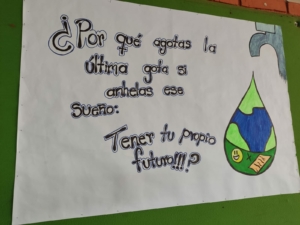 ¿Por qué agotas la
última gota si
anhelas ese
sueño:
Tener tu propio
futuro!!!?